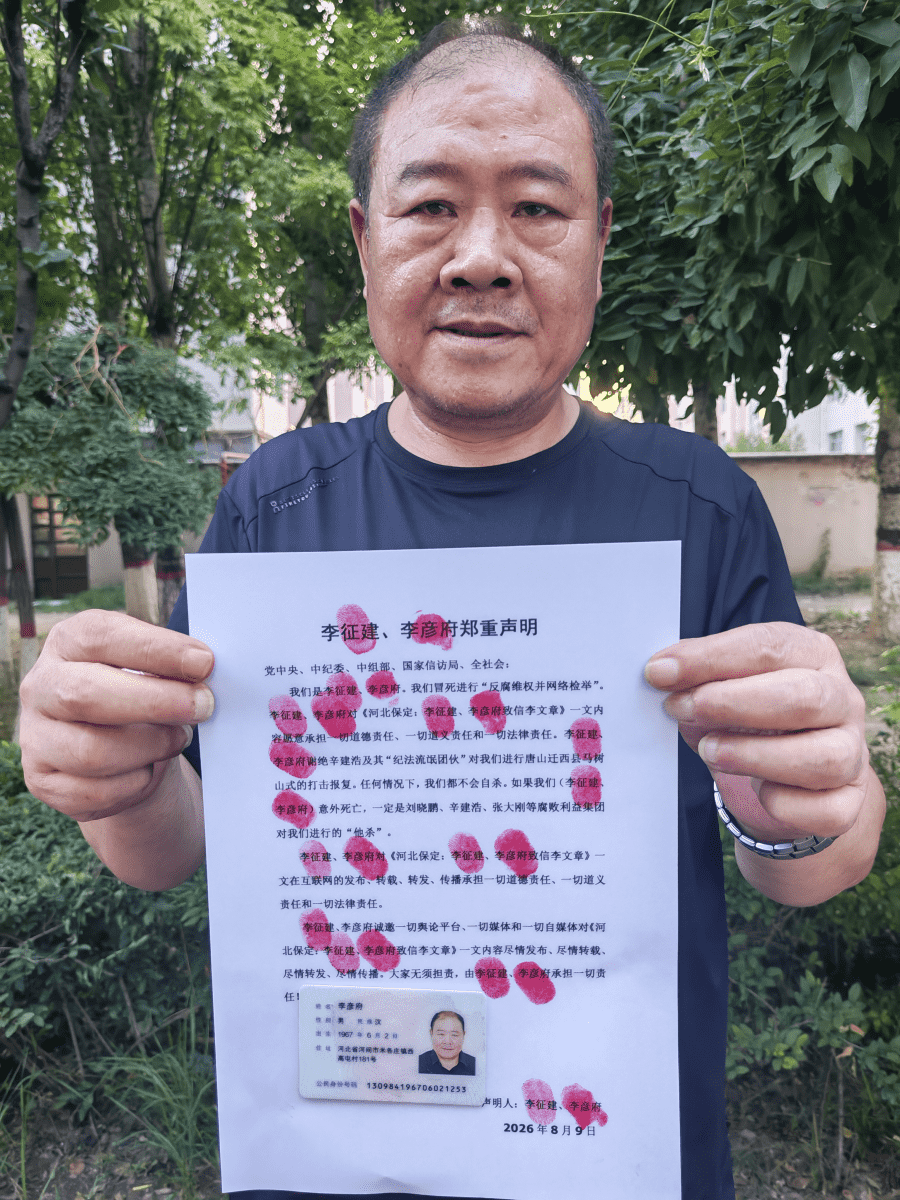 李征建、李彦府郑重声明
党中央、中纪委、中组部、国家信访局、全社会：
我们是李征建、李彦府。我们冒死进行“反腐维权并网络检举”。
李征建、李彦府对《河北保定：李征建、李彦府致信李文章》一文内
容愿意承担一切道德责任、一切道义责任和一切法律责任。李征建、
李彦府谢绝辛建浩及其“纪法流氓团伙”对我们进行唐山迁西县马树
山式的打击报复。任何情况下，我们都不会自杀。如果我们（李征建、
李彦府）意外死亡，一定是刘晓鹏、辛建浩、张大刚等腐败利益集团
对我们进行的“他杀”。
李征建、李彦府对《河北保定：李征建、李彦府致信李文章》一
文在互联网的发布、转载、转发、传播承担一切道德责任、一切道义
责任和一切法律责任。
李征建、李彦府诚邀一切舆论平台、一切媒体和一切自媒体对《河
北保定：李征建、李彦府致信李文章》一文内容尽情发布、尽情转载、
尽情转发、尽情传播。大家无须担责，由李征建、李彦府承担一切责
任！
姓名 李彦府
性别 男 民族 汉
出生 1967 年 6 月 2 日
住址 河北省河间市米各庄镇西
高屯村181号
公民身份号码 130984196706021253
声明人：李征建、李彦府
2026 年 8 月 9 日